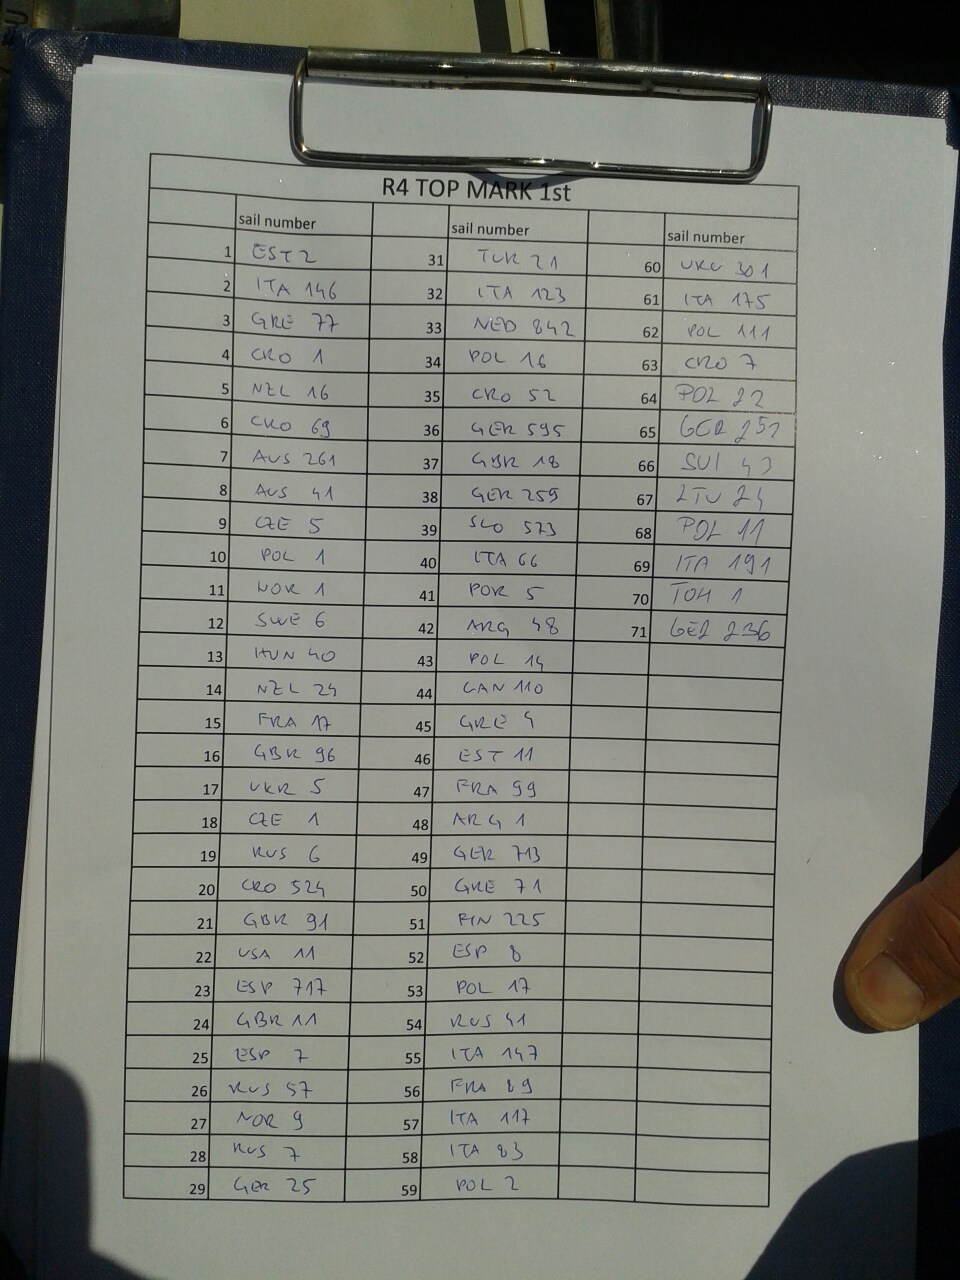 R4 TOP MARK 1st
sail number sail number sail number
1 EST 2 31 TUR 21 60 UKR 301
2 ITA 146 32 ITA 123 61 ITA 175
3 GRE 77 33 NED 842 62 POL 111
4 CRO 1 34 POL 16 63 CRO 7
5 NZL 16 35 CRO 52 64 POL 22
6 CRO 69 36 GER 595 65 GER
7 AUS 261 37 GBR 18 66 SUI
8 AUS 41 38 GER 259 67 LTU 24
9 CZE 5 39 SLO 573 68 POL 11
10 POL 1 40 ITA 66 69 ITA 191
11 NOR 1 41 POR 5 70 1
12 SWE 6 42 ARG 48 71 GER 236
13 HUN 40 43 POL 14
14 NZL 24 44 CAN 110
15 FRA 17 45 GRE 4
16 GBR 96 46 EST 11
17 UKR 5 47 FRA 99
18 CZE 1 48 ARG 1
19 RUS 6 49 GER 713
20 CRO 524 50 GRE 71
21 GBR 91 51 FIN 225
22 USA 11 52 ESP 8
23 ESP 717 53 POL 17
24 GBR 11 54 RUS 41
25 ESP 7 55 ITA 147
26 RUS 57 56 FRA 89
27 NOR 9 57 ITA 117
28 RUS 7 58 ITA 83
29 GER 25 59 POL 2